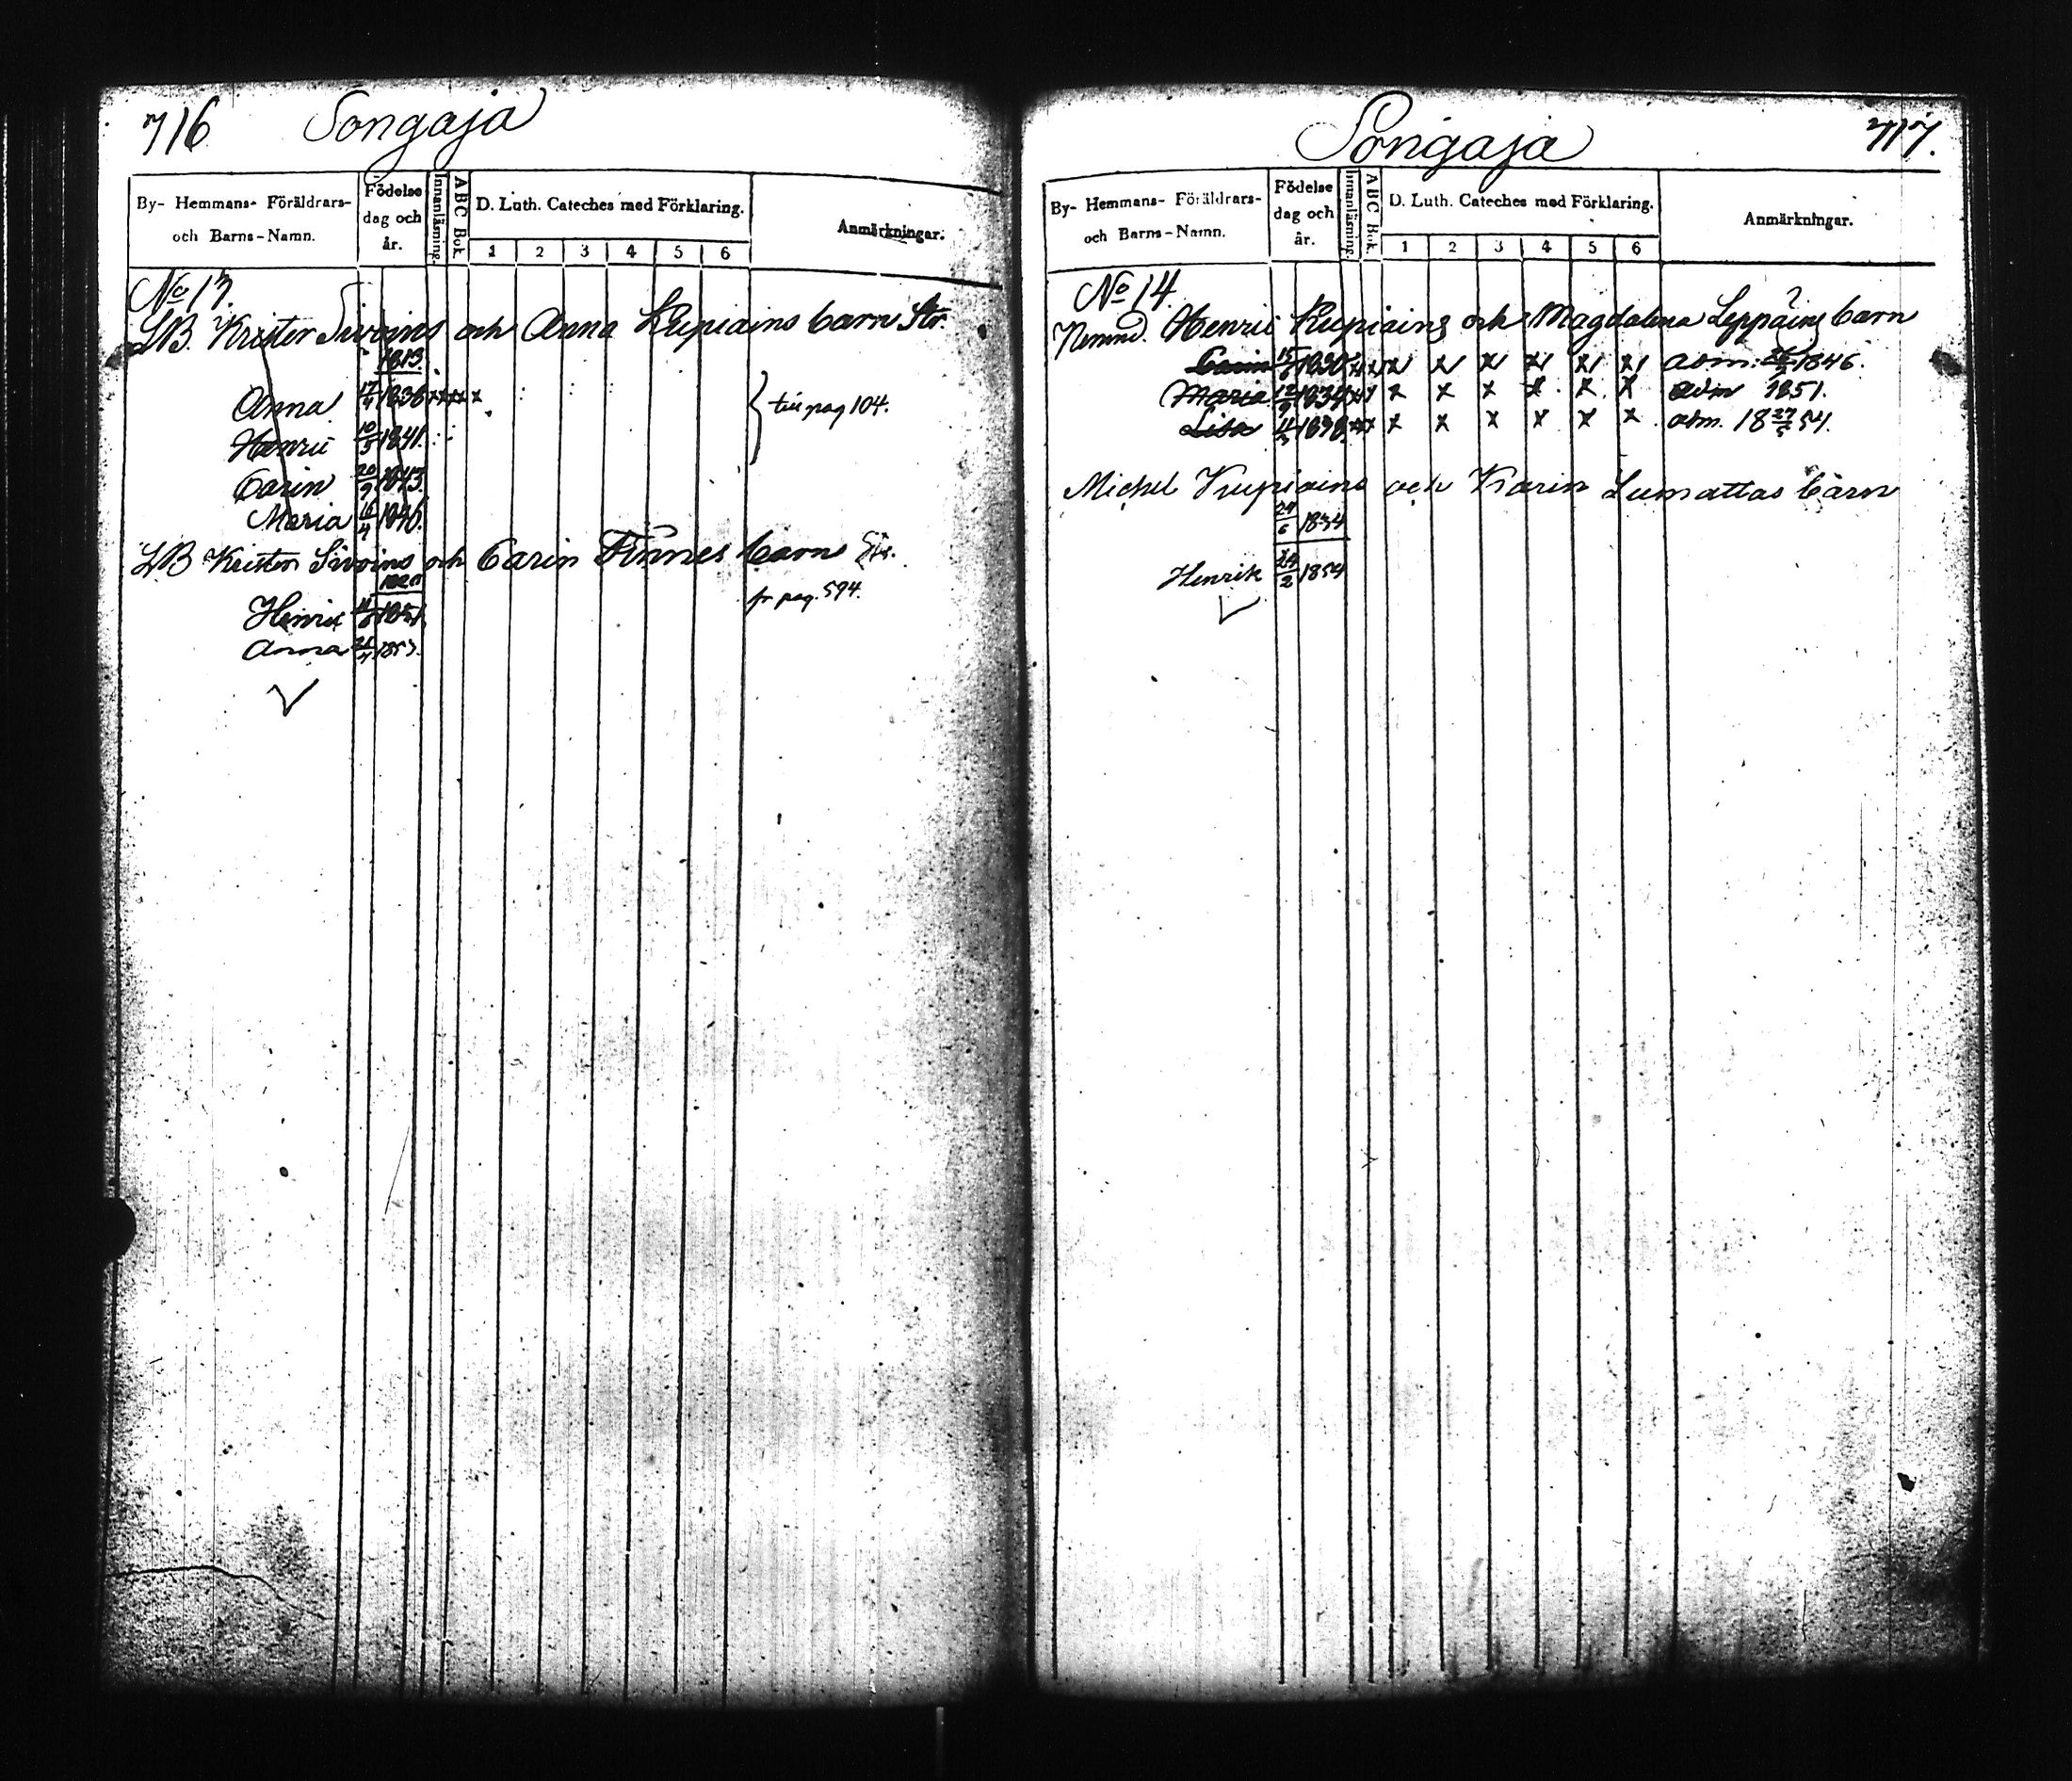 716 Songaja
By- Hemmans- Föräldrars- och Barns-Namn.
Födelse dag och år.
Innanläsning.
ABC Bok.
D. Luth. Cateches med Förklaring.
1 2 3 4 5 6
Anmärkningar.
No 13.
LB. Krister Sivoins och Anna Kupiains barn Str.
1813.
Anna 17/4 1838 x x x x x
till pag 104.
Henric 10/5 1841.
Carin 20/9 1843.
Maria 16/4 1846.
LB Krister Sivoins och Carin Finnes barn Str.
fr pag. 594.
Henric 1851.
Anna 1853.
Songaja 717.
By- Hemmans- Föräldrars- och Barns-Namn.
Födelse dag och år.
Innanläsning.
ABC Bok.
D. Luth. Cateches med Förklaring.
1 2 3 4 5 6
Anmärkningar.
No 14.
Nemnd. Henric Kupiains och Magdalena Leppäins barn
Carin 1830 x x x x x x x x adm. 1846.
Maria 12/9 1834 x x x x x x x adm 1851.
Lisa 1838 x x x x x x x x adm. 18 27/5 54.
Michel Kupiains och Karin Lumattas barn
29/6 1834
Henrik 24/2 1854